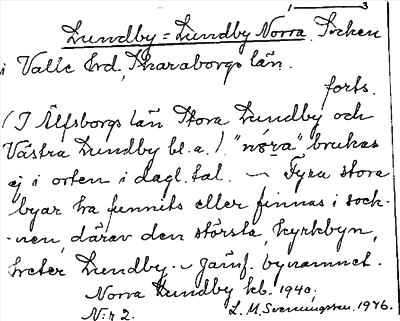 1 — 3
Lundby = Lundby Norra Socken
i Valle hrd, Skaraborgs län.
forts.
(I Älfsborgs län Stora Lundby och
Västra Lundby bl.a.). "nóra" brukas
ej i orten i dagl. tal. — Fyra stora
byar ha funnits eller finnas i sock-
-nen, därav den största, kyrkbyn,
heter Lundby. — Jämf. bynamnet.
Norra Lundby kb. 1940.
N:r 2. L. M. Svenungsson. 1946.